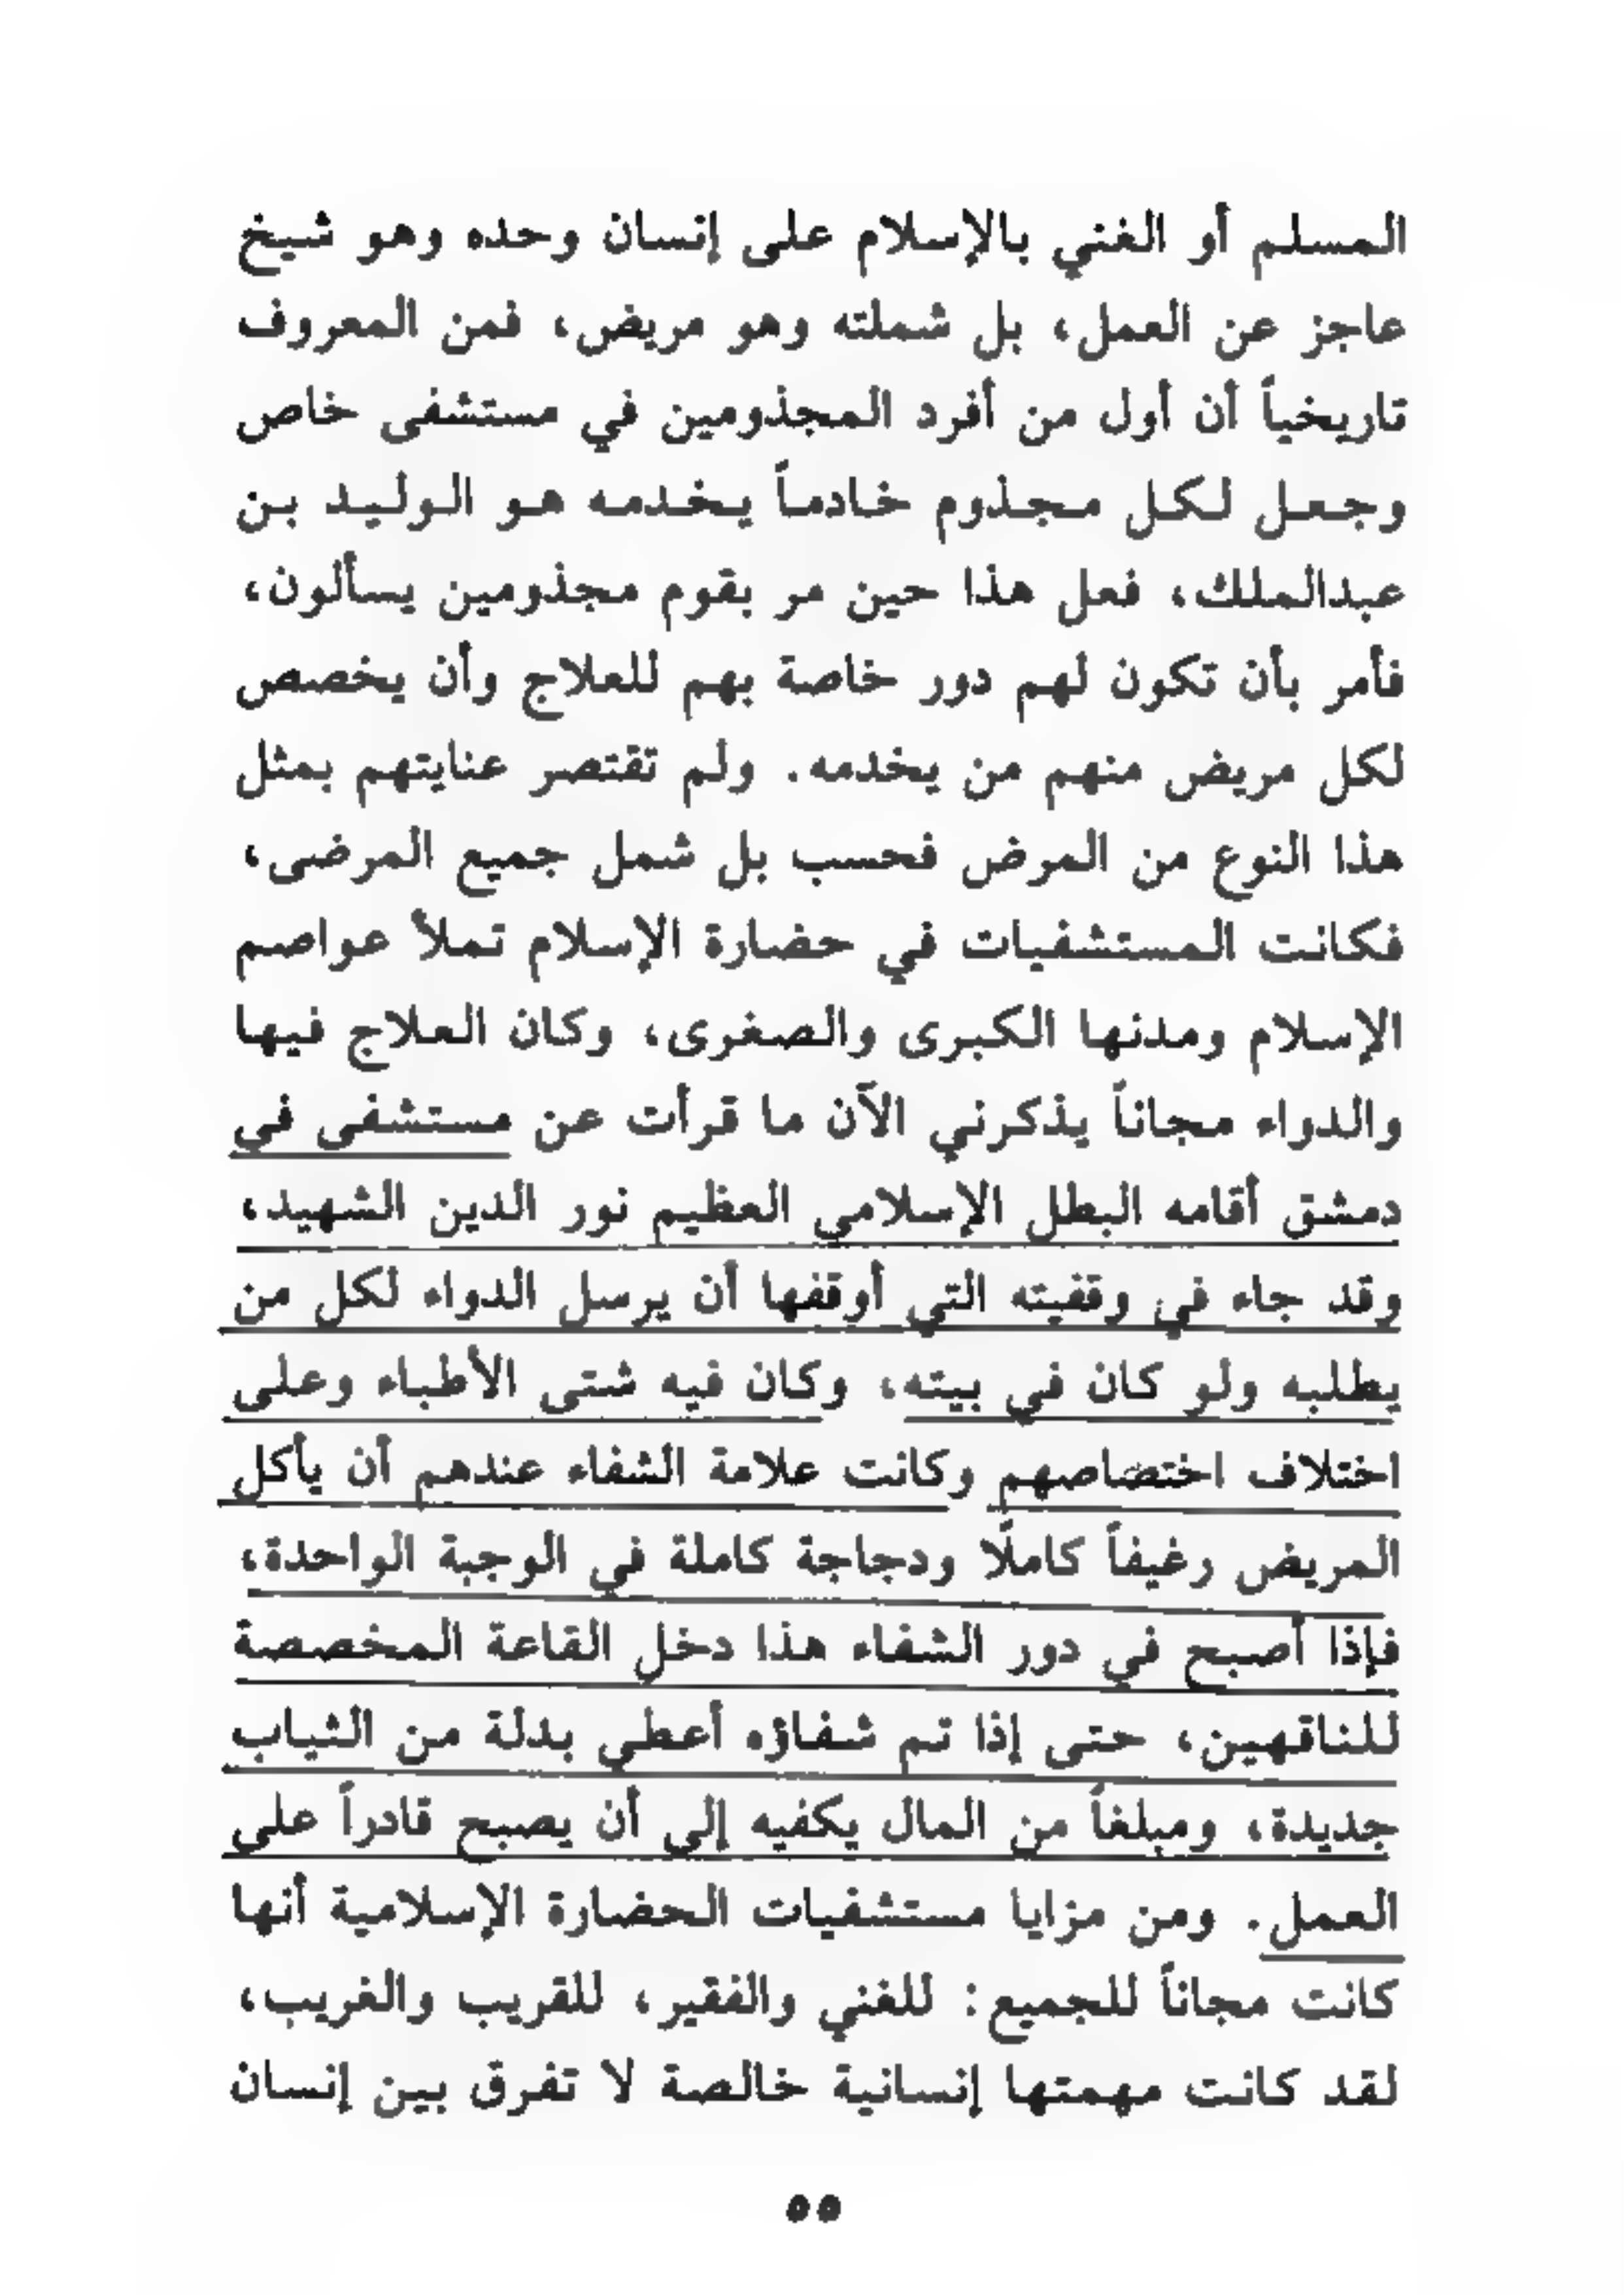 المسلم أو الغني بالإسلام على إنسان وحده وهو شيخ
عاجز عن العمل، بل شملته وهو مريض، فمن المعروف
تاريخياً أن أول من أفرد المجذومين في مستشفى خاص
وجعل لكل مجذوم خادماً يخدمه هو الوليد بن
عبدالملك، فعل هذا حين مر بقوم مجذومين يسألون،
فأمر بأن تكون لهم دور خاصة بهم للعلاج وأن يخصص
لكل مريض منهم من يخدمه. ولم تقتصر عنايتهم بمثل
هذا النوع من المرض فحسب بل شمل جميع المرضى،
فكانت المستشفيات في حضارة الإسلام تملأ عواصم
الإسلام ومدنها الكبرى والصغرى، وكان العلاج فيها
والدواء مجاناً يذكرني الآن ما قرأت عن مستشفى في
دمشق أقامه البطل الإسلامي العظيم نور الدين الشهيد،
وقد جاء في وقفيته التي أوقفها أن يرسل الدواء لكل من
يطلبه ولو كان في بيته، وكان فيه شتى الأطباء وعلى
اختلاف اختصاصهم وكانت علامة الشفاء عندهم أن يأكل
المريض رغيفاً كاملًا ودجاجة كاملة في الوجبة الواحدة،
فإذا أصبح في دور الشفاء هذا دخل القاعة المخصصة
للناقهين، حتى إذا تم شفاؤه أعطي بدلة من الثياب
جديدة، ومبلغاً من المال يكفيه إلى أن يصبح قادراً على
العمل. ومن مزايا مستشفيات الحضارة الإسلامية أنها
كانت مجاناً للجميع: للغني والفقير، للقريب والغريب،
لقد كانت مهمتها إنسانية خالصة لا تفرق بين إنسان
٥٥